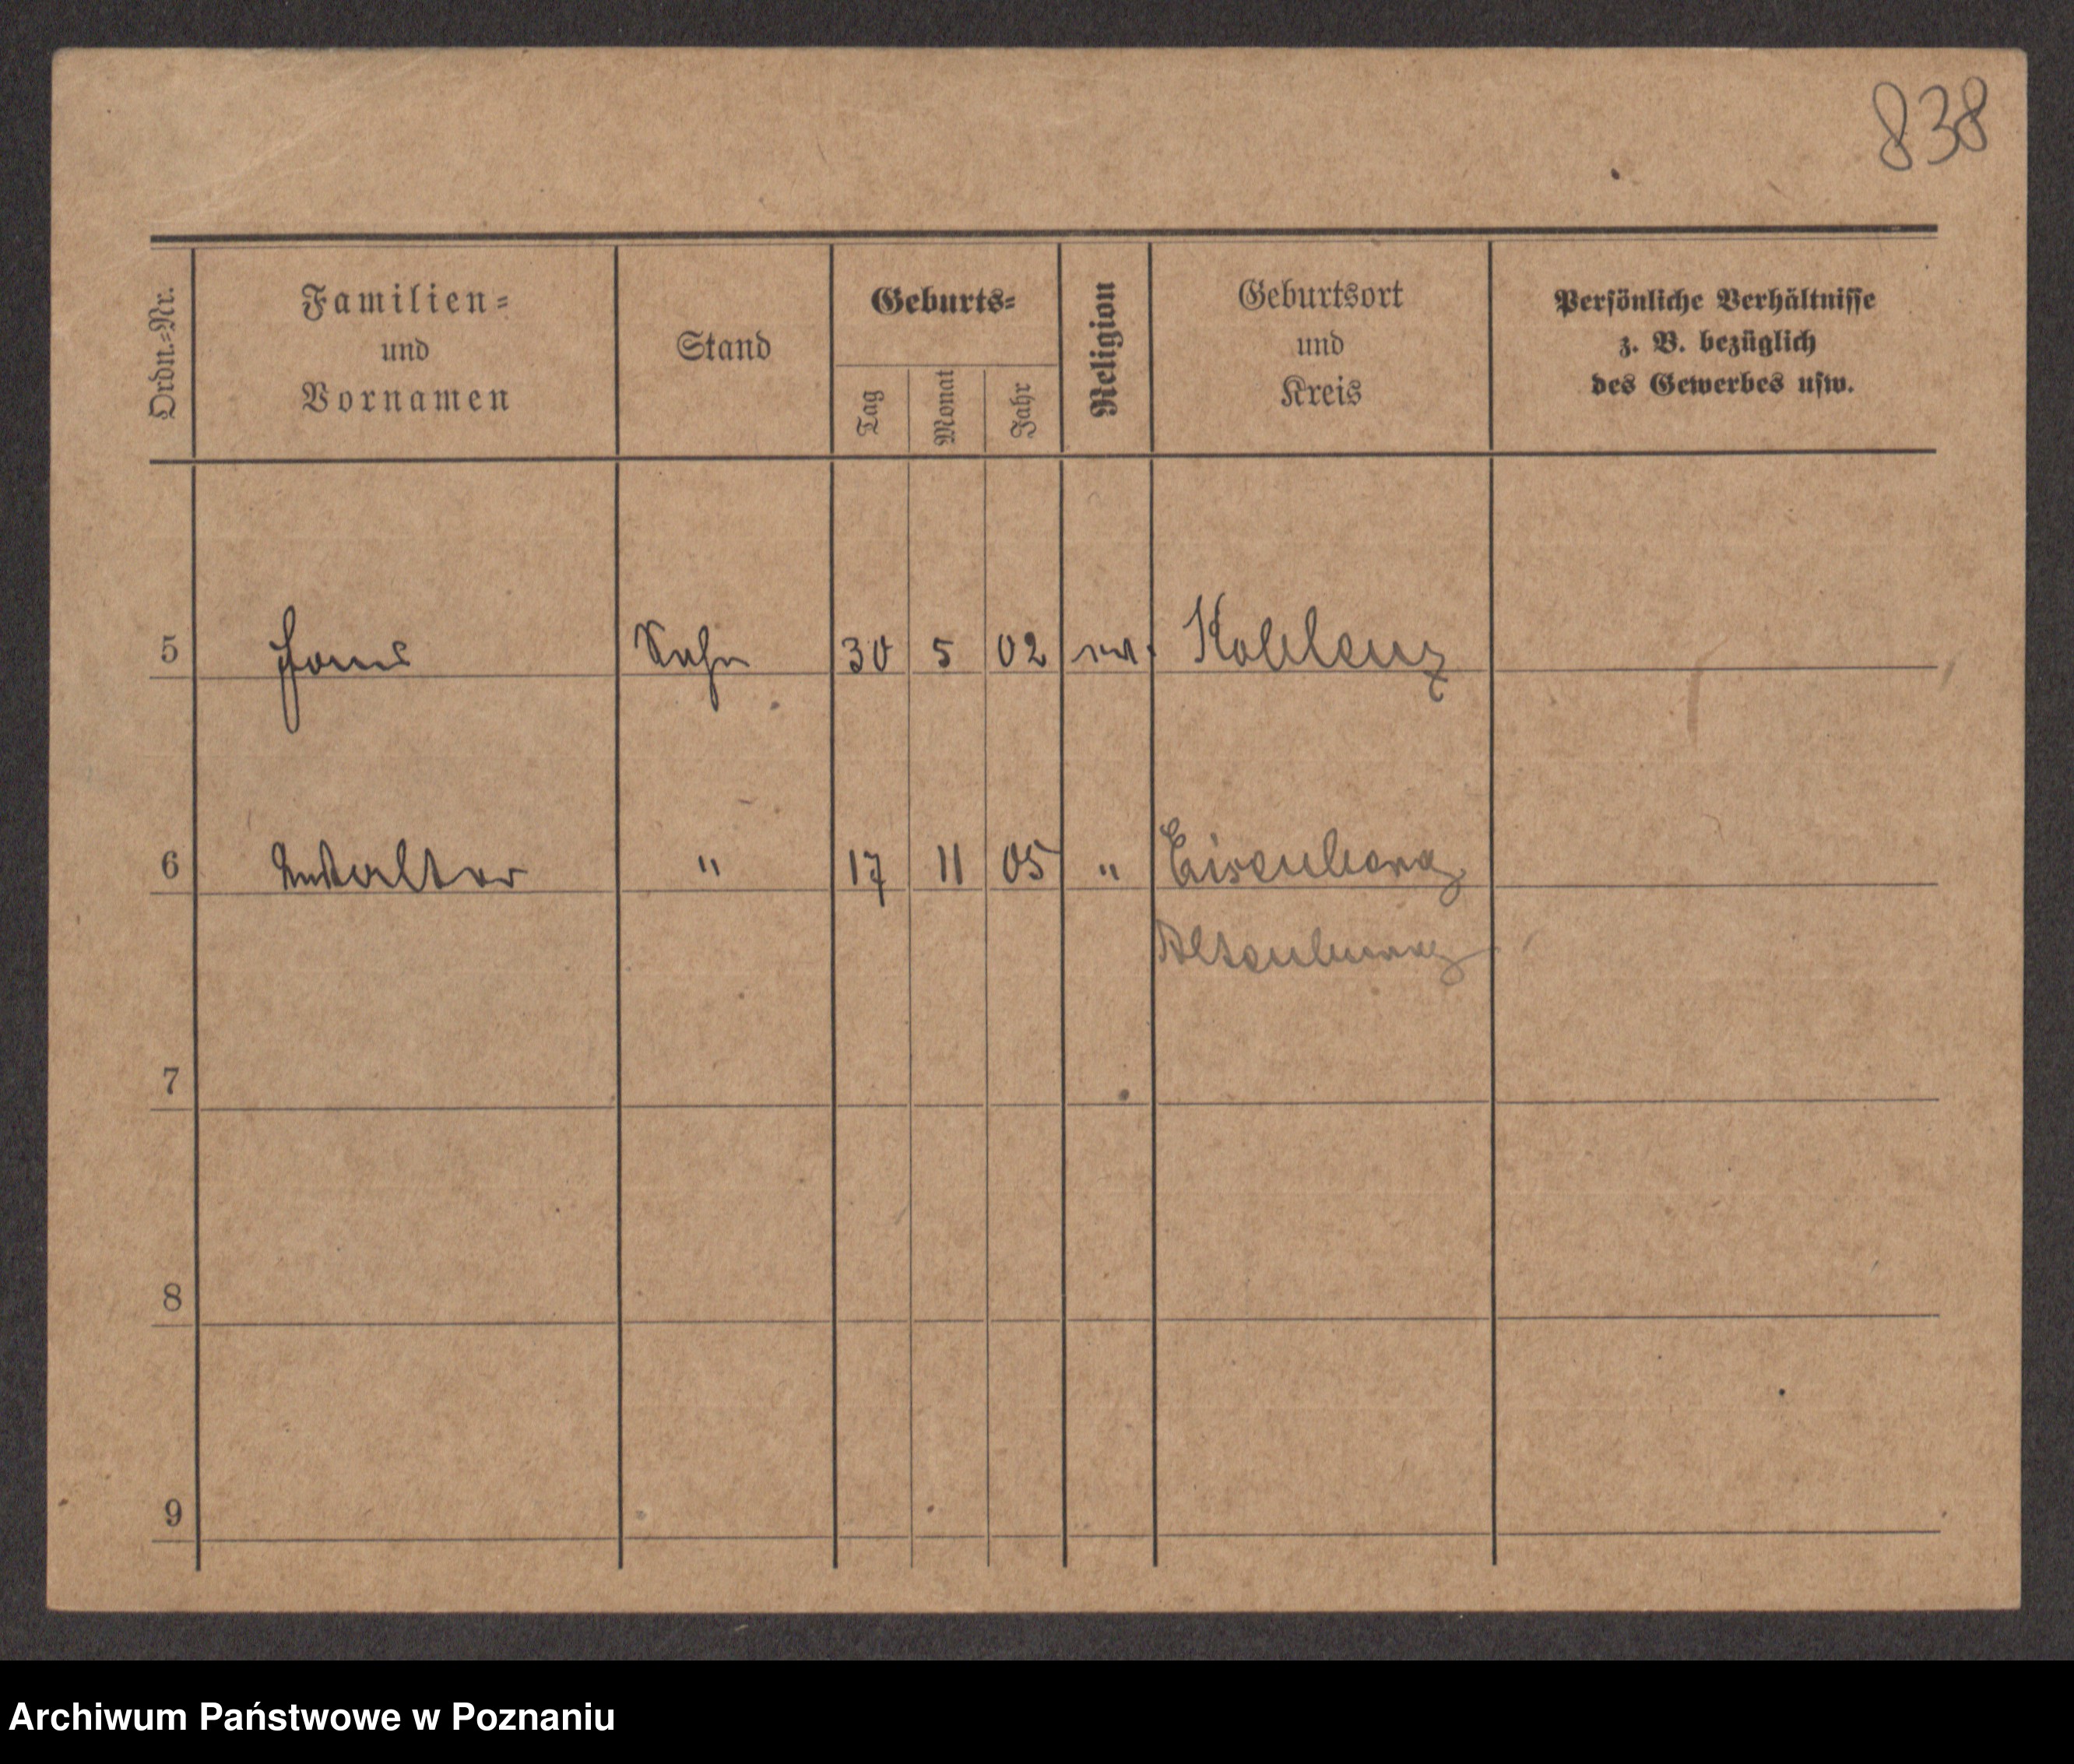 838
Ordn.-Nr.
Familien-
und
Vornamen
Stand
Geburts-
Tag
Monat
Jahr
Religion
Geburtsort
und
Kreis
Persönliche Verhältnisse
z. B. bezüglich
des Gewerbes usw.
5 Hans Sohn 30 5 02 ev. Koblenz
6 Walter " 17 11 05 " Eisenberg
Altenburg
7
8
9
Archiwum Państwowe w Poznaniu